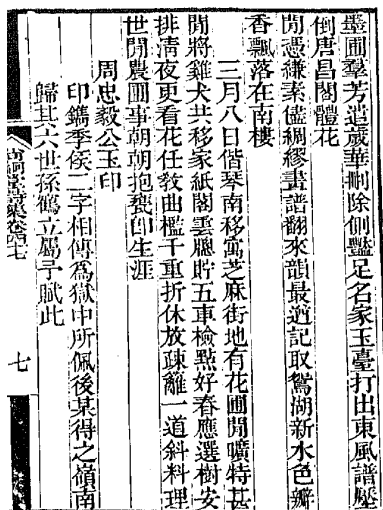 墨圃羣芳造歲華刪除側豔足名家玉臺打出東風譜壓
倒唐昌閣體花
閒憑縑素儘綢繆畫譜翻來韻最遒記取鴛湖新水色瓣
香飄落在南樓
三月八日偕琴南移寓芝麻街地有花圃閒曠特甚
閒將雞犬共移家紙閣雲牕貯五車檢點好春應選樹安
排清夜更看花任教曲檻千重折休放疎籬一道斜料理
世閒農圃事朝朝抱甕卽生涯
周忠毅公玉印
印鐫季侯二字相傳爲獄中所佩後某得之嶺南
歸其六世孫鶴立屬予賦此
詩集卷
七